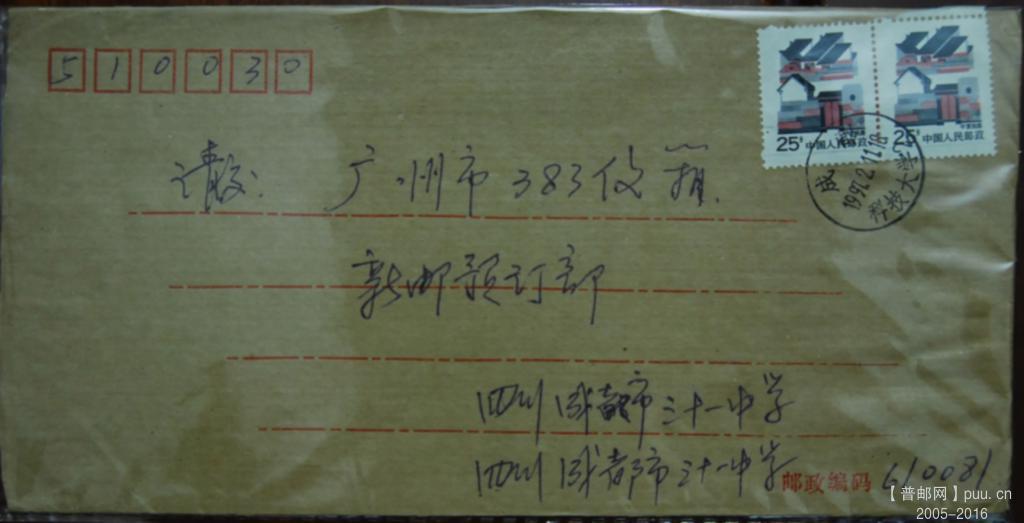 510030
25分 中国人民邮政
25分 中国人民邮政
成都
1992.2.11.
科技大学
请交: 广州市383信箱.
新邮预订部
四川成都市三十一中学
四川成都市三十一中学
邮政编码 610081
【普邮网】puu.cn
2005-2016